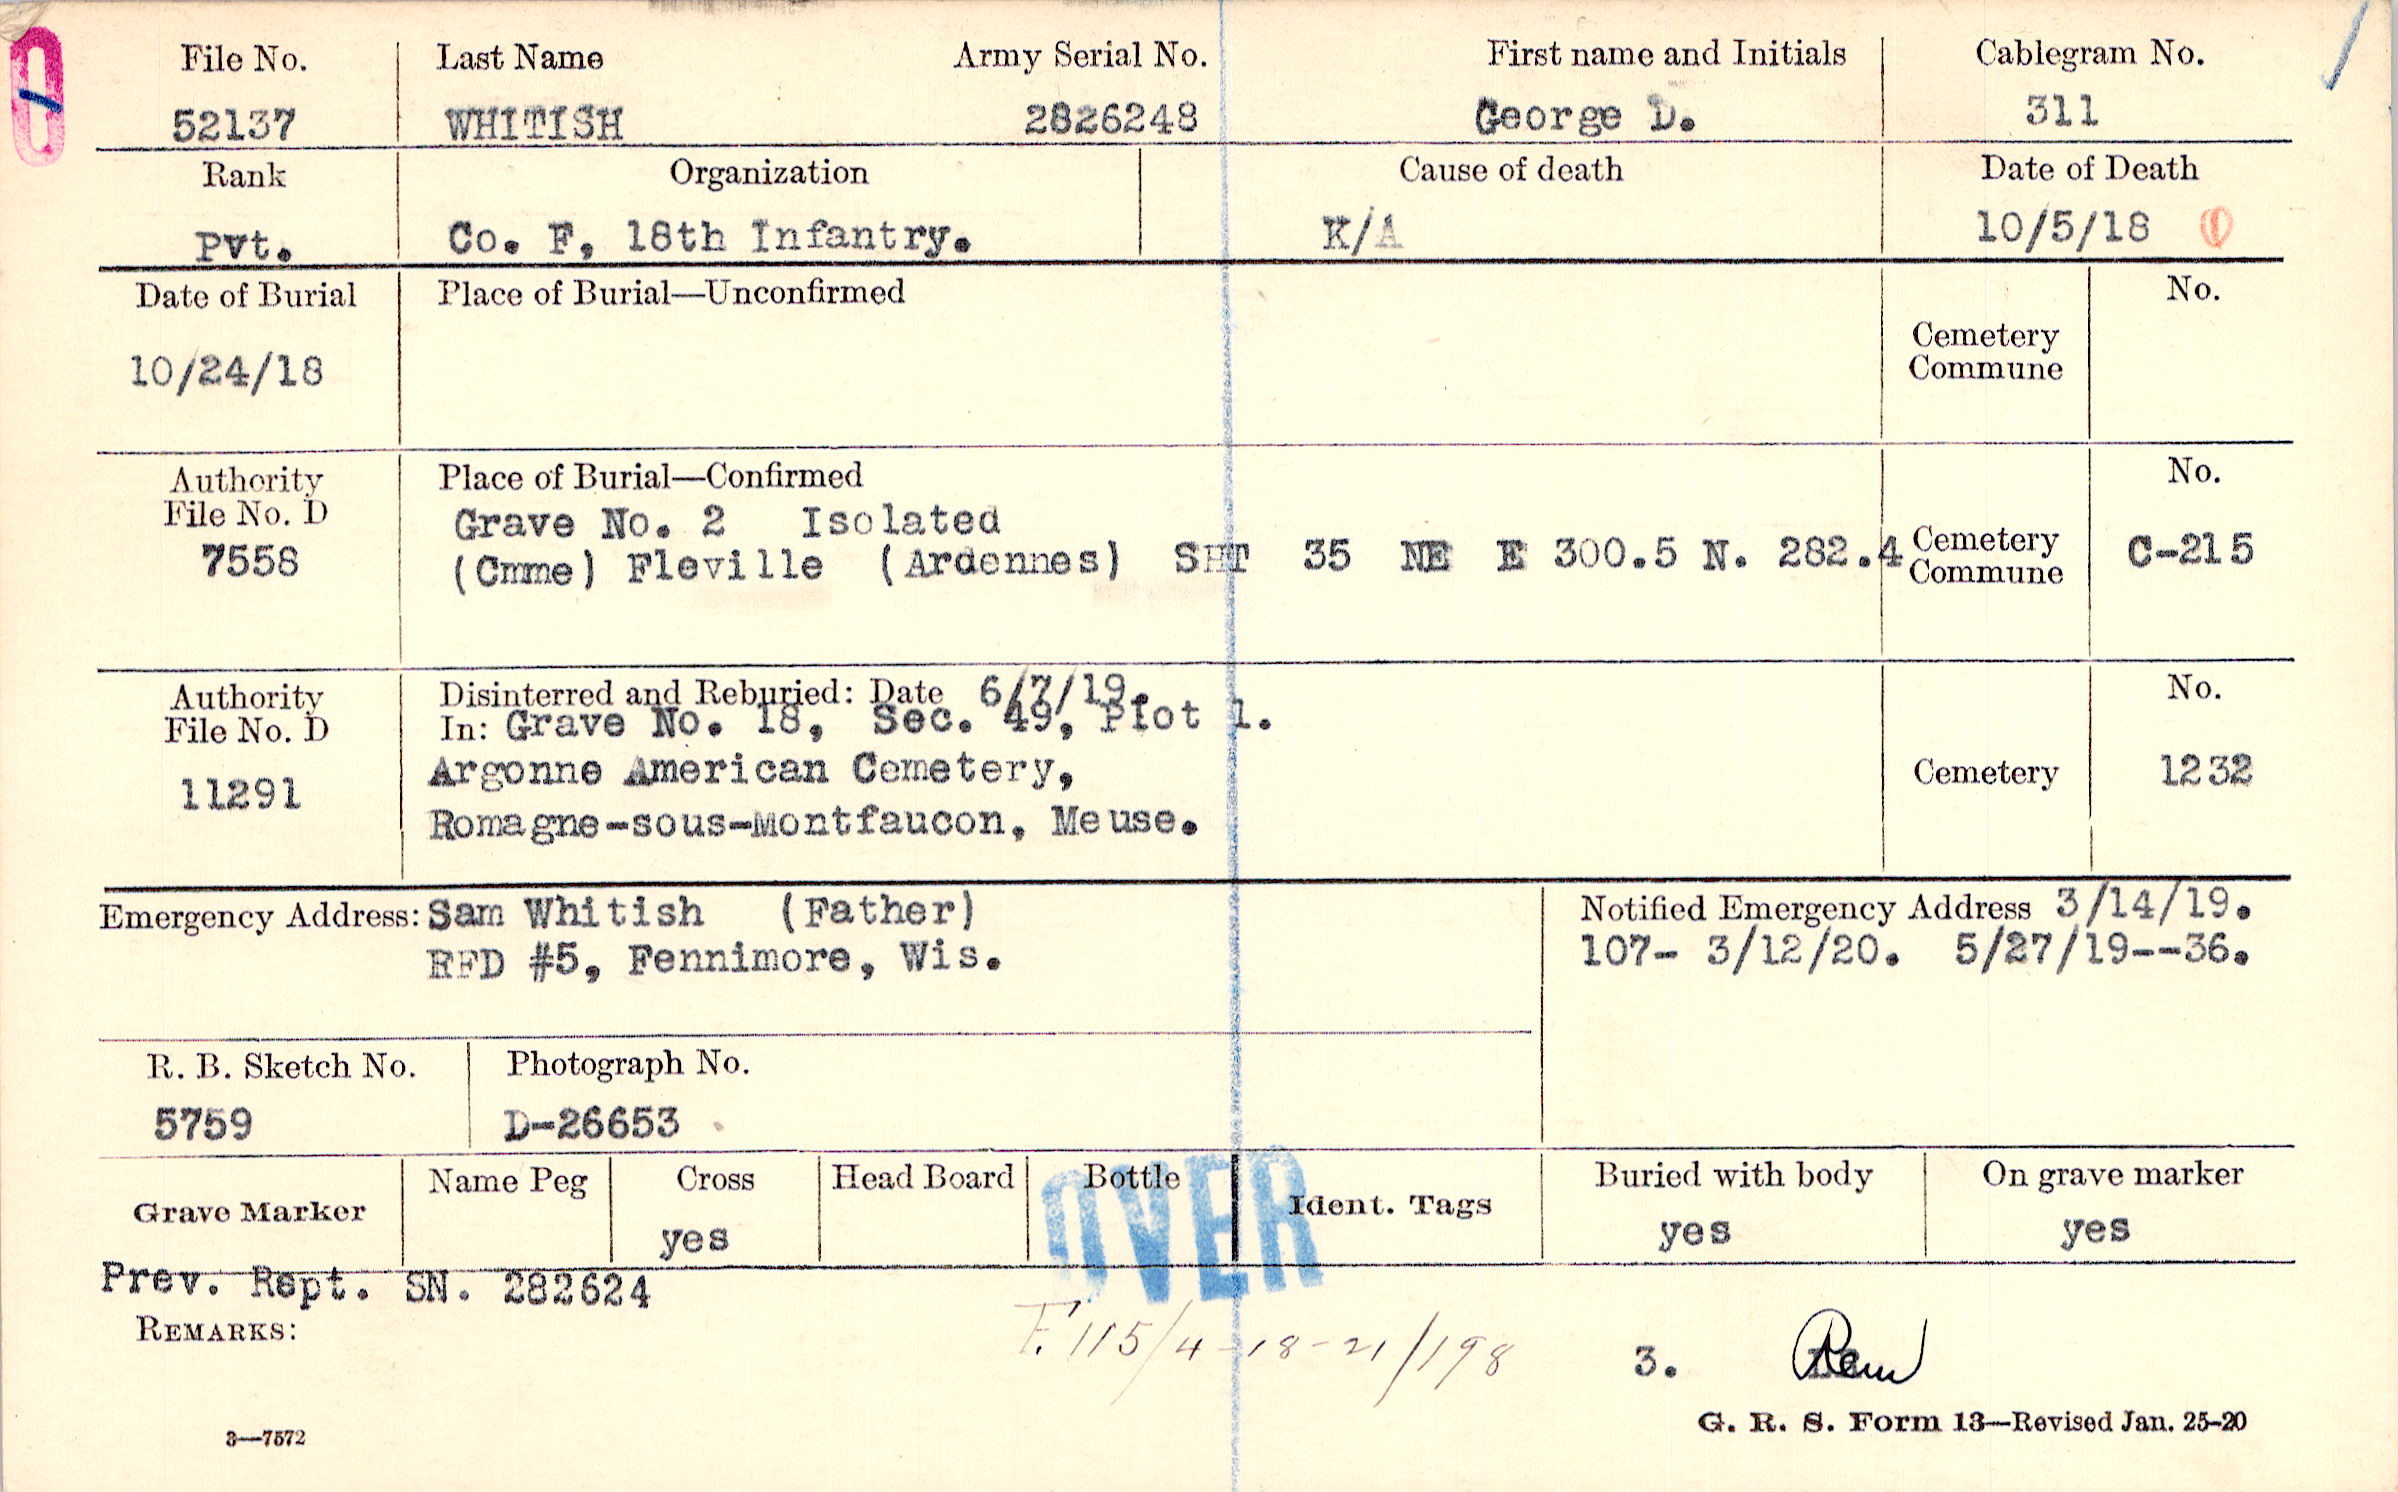 File No. Last Name Army Serial No. First name and Initials Cablegram No.
52137 WHITISH 2826248 George D. 311
Rank Organization Cause of death Date of Death
Pvt. Co. F, 18th Infantry. K/A 10/5/18
Date of Burial Place of Burial—Unconfirmed No.
10/24/18 Cemetery
Commune
Authority Place of Burial—Confirmed No.
File No. D Grave No. 2 Isolated
7558 (Cmme) Fleville (Ardennes) SHT 35 NE E 300.5 N. 282.4 Cemetery C-215
Commune
Authority Disinterred and Reburied: Date 6/7/19. No.
File No. D In: Grave No. 18, Sec. 49, Plot 1.
11291 Argonne American Cemetery, Cemetery 1232
Romagne-sous-Montfaucon, Meuse.
Emergency Address: Sam Whitish (Father) Notified Emergency Address 3/14/19.
RFD #5, Fennimore, Wis. 107- 3/12/20. 5/27/19--36.
R. B. Sketch No. Photograph No.
5759 D-26653
Grave Marker Name Peg Cross Head Board Bottle Ident. Tags Buried with body On grave marker
yes yes yes
OVER
Prev. Rept. SN. 282624
REMARKS:
F. 115/4-18-21/198
3.
G. R. S. Form 13—Revised Jan. 25-20
3—7572